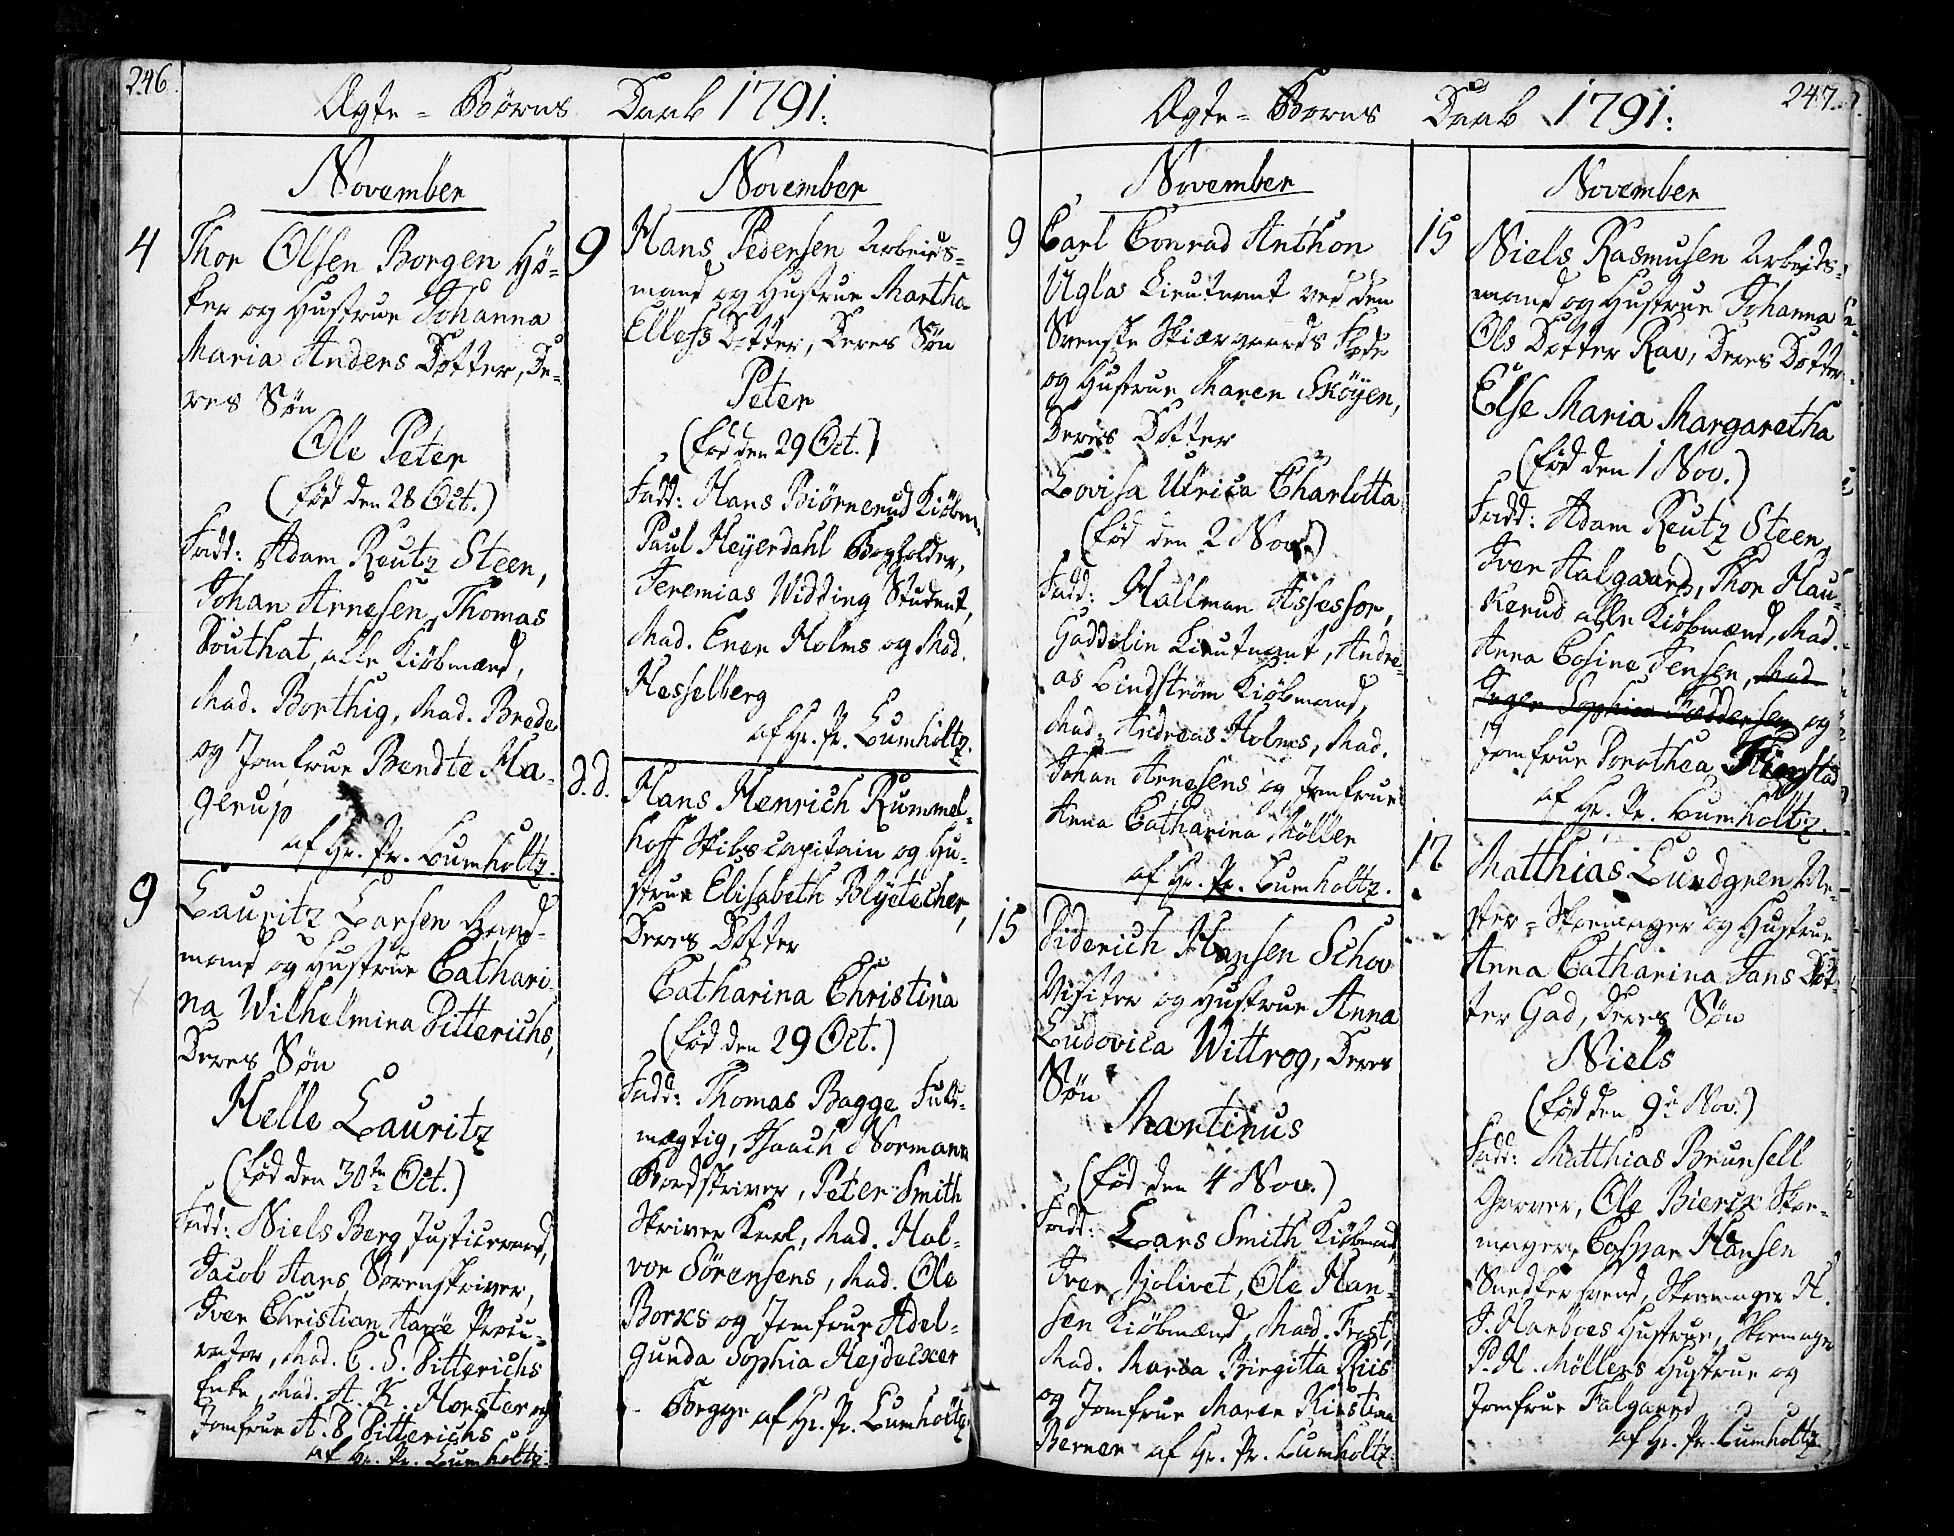 246.
Ægte = Børns Daab 1791.
November
4 Thor Olsen Borgen Hø-
ker og Hustrue Johanna
Maria Anders Dotter, De-
res Søn
Ole Peter
(fød den 28 Oct.)
Fadd: Adam Reutz Steen,
Johan Arnesen, Thomas
Southat, alle Kiøbmænd,
Mad. Borthig, Mad. Brede
og Jomfrue Bendte Ha-
gerup
af Hr. Pr. Lumholtz.
9 Lauritz Larsen
mand og Hustrue Cathari-
na Wilhelmina Ditterichs,
Deres Søn
Helle Lauritz
(fød den 30te Oct.)
Fadd: Niels Berg Justiceraad,
Jacob Aars Sorenskriver,
Iver Christian Aarøe Procu-
rator, Mad. C. S. Ditterichs
Enke, Mad. A. K. Horster og
Jomfrue A. B. Ditterichs
af Hr. Pr. Lumholtz.
November
9 Hans Pedersen Arbeids-
mand og Hustrue Martha
Ellefs Dotter, Deres Søn
Peter
(fød den 29 Oct.)
Fadd: Hans Biørnerud Kiøbm.
Paul Heyerdahl Bogholder,
Jeremias Widding Student,
Mad. Ener Holms og Mad.
Hesselberg
af Hr. Pr. Lumholtz.
d. d. Hans Henrich Rummel-
hoff Skibscapitain og Hu-
strue Elisabeth Blÿtecher,
Deres Dotter
Catharina Christina
(fød den 29 Oct.)
Fadd: Thomas Bagge Fuld-
mægtig, Isaach Normann
Bordskriver, Peter Smith
Skriver Karl, Mad. Hal-
vor Sörensens, Mad. Ole
Borks og Jomfrue Adel-
gunda Sophia Hejdelker
- Begge af Hr. Pr. Lumholtz.
247.
Ægte = Børns Daab 1791.
November
9 Carl Conrad Anthon
Uglas Lieutnant ved den
Svenske Skiærgaards Flode
og Hustrue Maren Sköyen,
Deres Dotter
Lovisa Ulrica Charlotta
(fød den 2 Nov.)
Fadd: Hallman Assessor,
Gaddolin Lieutnant, Andre-
as Lindström Kiøbmand,
Mad. Andreas Holmes, Mad.
Johan Arnesens og Jomfrue
Anna Catharina Möller
af Hr. Pr. Lumholtz.
15 Diderich Hansen Schov
Visiteur og Hustrue Anna
Ludovica Wittrog, Deres
Søn
Martinus
(fød den 4 Nov.)
Fadd: Lars Smith Kiøbmand,
Iver Jjolivet, Ole Han-
sen Kiøbmænd, Mad. Frost,
Mad. Maria Birgitta Riis
og Jomfrue Maren Kirstina
Berner af Hr. Pr. Lumholtz.
November
15 Niels Rasmusen Arbeids-
mand og Hustrue Johanna
Ols Dotter Rav, Deres Dotter
Else Maria Margaretha
(fød den 1 Nov.)
Fadd: Adam Reutz Steen,
Iver Aalgaard, Thor Hau-
kerud alle Kiøbmænd, Mad.
Anna Cosine Jensen, Mad.
Inger Sophia Peddersen og
Jomfrue Dorothea
af Hr. Pr. Lumholtz.
17 Matthias Lundgren Me-
ster = Skomager og Hustrue
Anna Catharina Jans Dot-
ter Gad, Deres Søn
Niels
(fød den 9de Nov.)
Fadd: Matthias Brunsell
Garver, Ole Bierck Sko-
mager, Caspar Hansen
Snedker svend, Skomager H.
J. Harboes Hustrue, Skomager
P. H. Möllers Hustrue og
Jomfrue Falgaard
af Hr. Pr. Lumholtz.